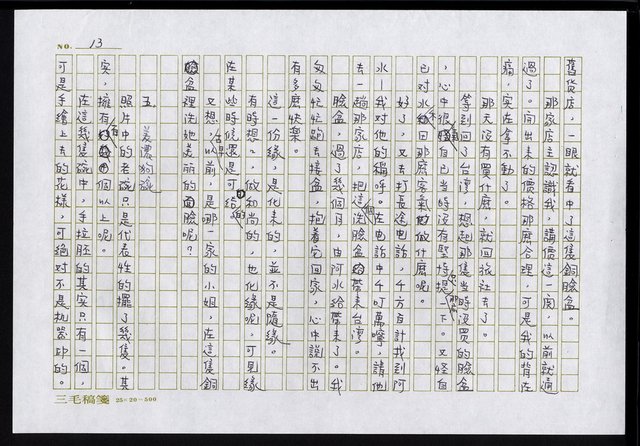 NO. 13
舊貨店，一眼就看中了這隻銅臉盆。
那家店主認識我，講價這一関，以前就通
過了。開出來的價格那麼合理，可是我的背在
痛，实在拿不動了。
那天沒有買什麼，就回旅社去了。
等到回了台灣，想起那隻当時沒買的臉盆
，心中很怪自己当時沒有堅持提一下。又怪自
已对水那麼客氣做什麼呢。
好了，又去打長途电話，千方百計找到阿
水—我对他的稱呼。在电話中千叮萬嚀，請他
去一趟那家店，把這洗臉盆給帶來台灣。
臉盆，過了幾個月，由阿水給帶來了。我
匆匆忙忙跑去接盆，抱着它回家，心中說不出
有多麼快樂。
這一份緣，是化來的，並不是隨緣。
有時想，做和尚的，也化緣呢，可見緣
在某些時候還是可的。
又想，以前，是哪一家的小姐，在這隻銅
盆裡洗她美丽的面臉呢？
五、美濃狗碗
照片中的老碗只是代表性的擺了幾隻。其
实，擁有個以上呢。
在這幾隻碗中，手拉胚的其实只有一個，
可是手繪上去的花樣，可絕对不是机器印的。
三毛稿箋 25×20=500